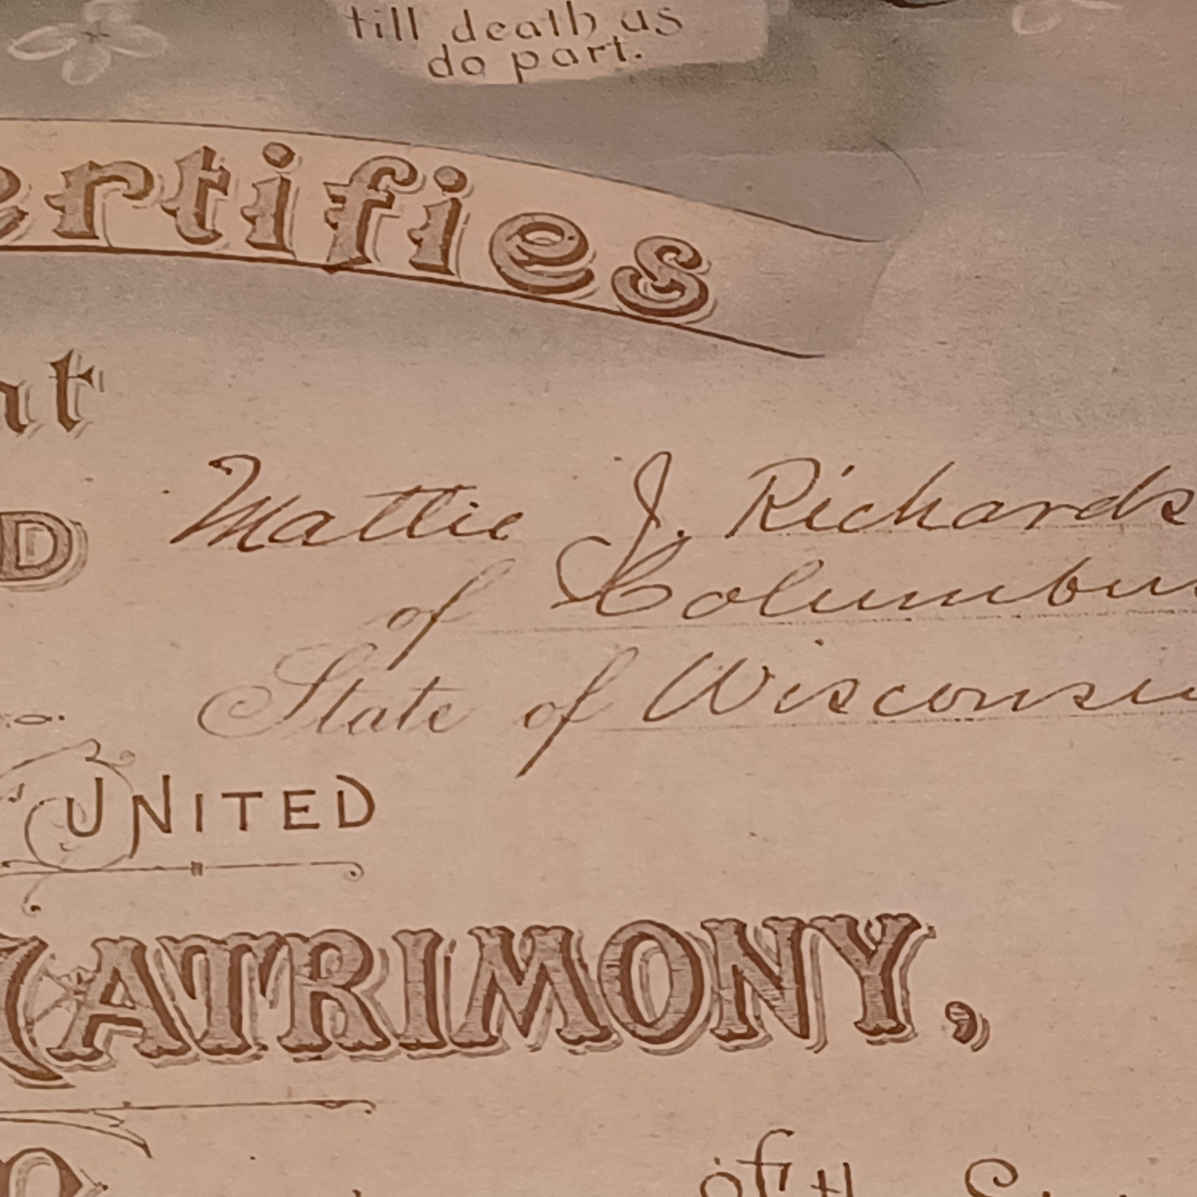 till death us
do part.
ertifies
nt
D Mattie J. Richards
of Columbu
State of Wisconsi
o.
UNITED
MATRIMONY,